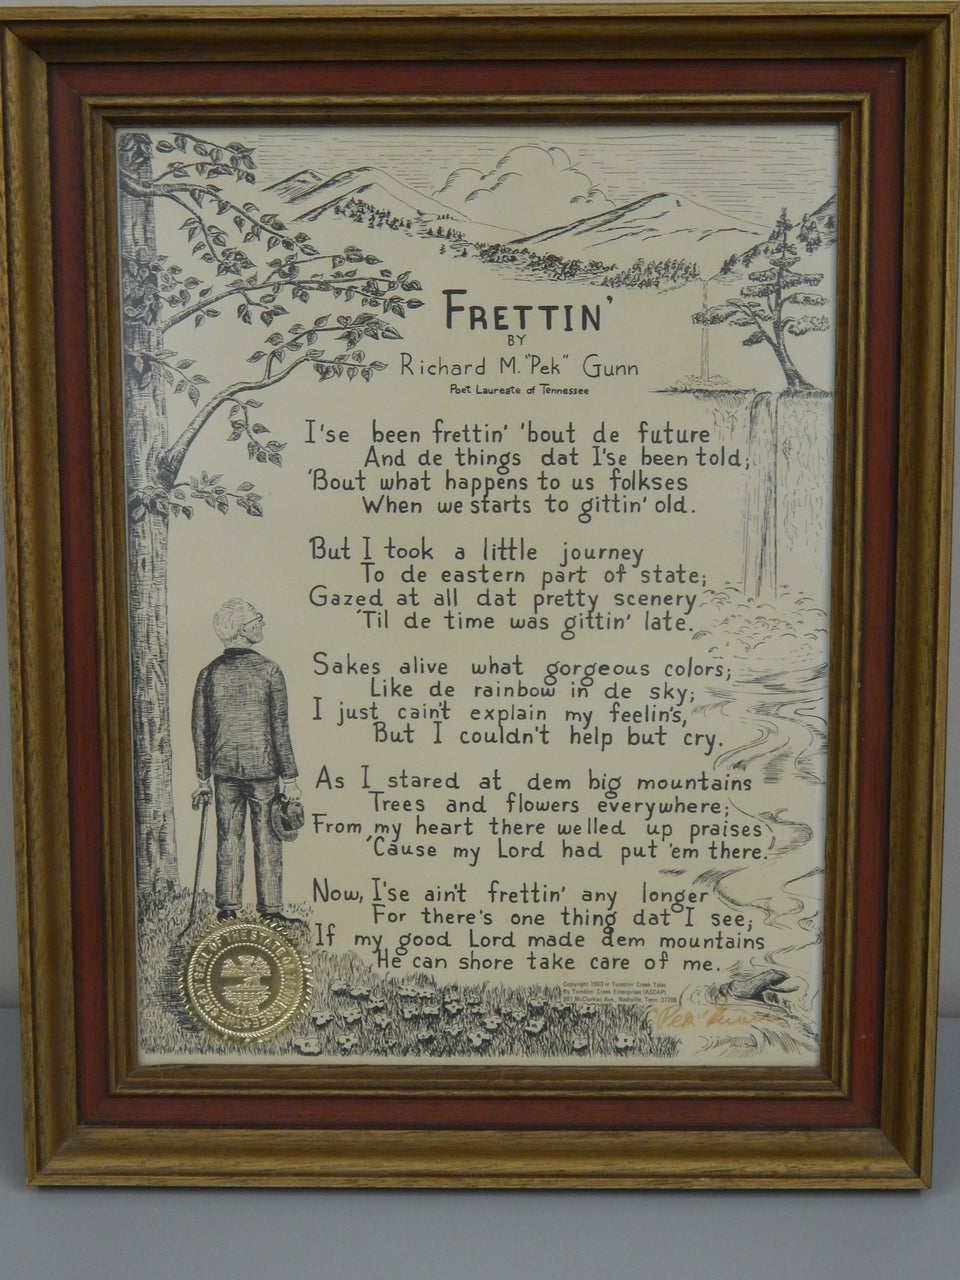 FRETTIN'
BY
Richard M. "Pek" Gunn
Poet Laureate of Tennessee
I'se been frettin' 'bout de future
And de things dat I'se been told;
'Bout what happens to us folkses
When we starts to gittin' old.
But I took a little journey
To de eastern part of state;
Gazed at all dat pretty scenery
'Til de time was gittin' late.
Sakes alive what gorgeous colors;
Like de rainbow in de sky;
I just cain't explain my feelin's,
But I couldn't help but cry.
As I stared at dem big mountains
Trees and flowers everywhere;
From my heart there welled up praises
'Cause my Lord had put 'em there.
Now, I'se ain't frettin' any longer
For there's one thing dat I see;
If my good Lord made dem mountains
He can shore take care of me.
Copyright 1963 in Tumblin' Creek Tales
By Tumblin' Creek Enterprises (ASCAP)
Ave., Nashville, Tenn. 37206
"Pek" Gunn
SEAL OF THE STATE OF